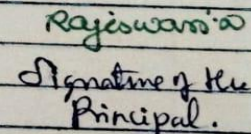 Rajeswari.a
Signature of the
Principal.